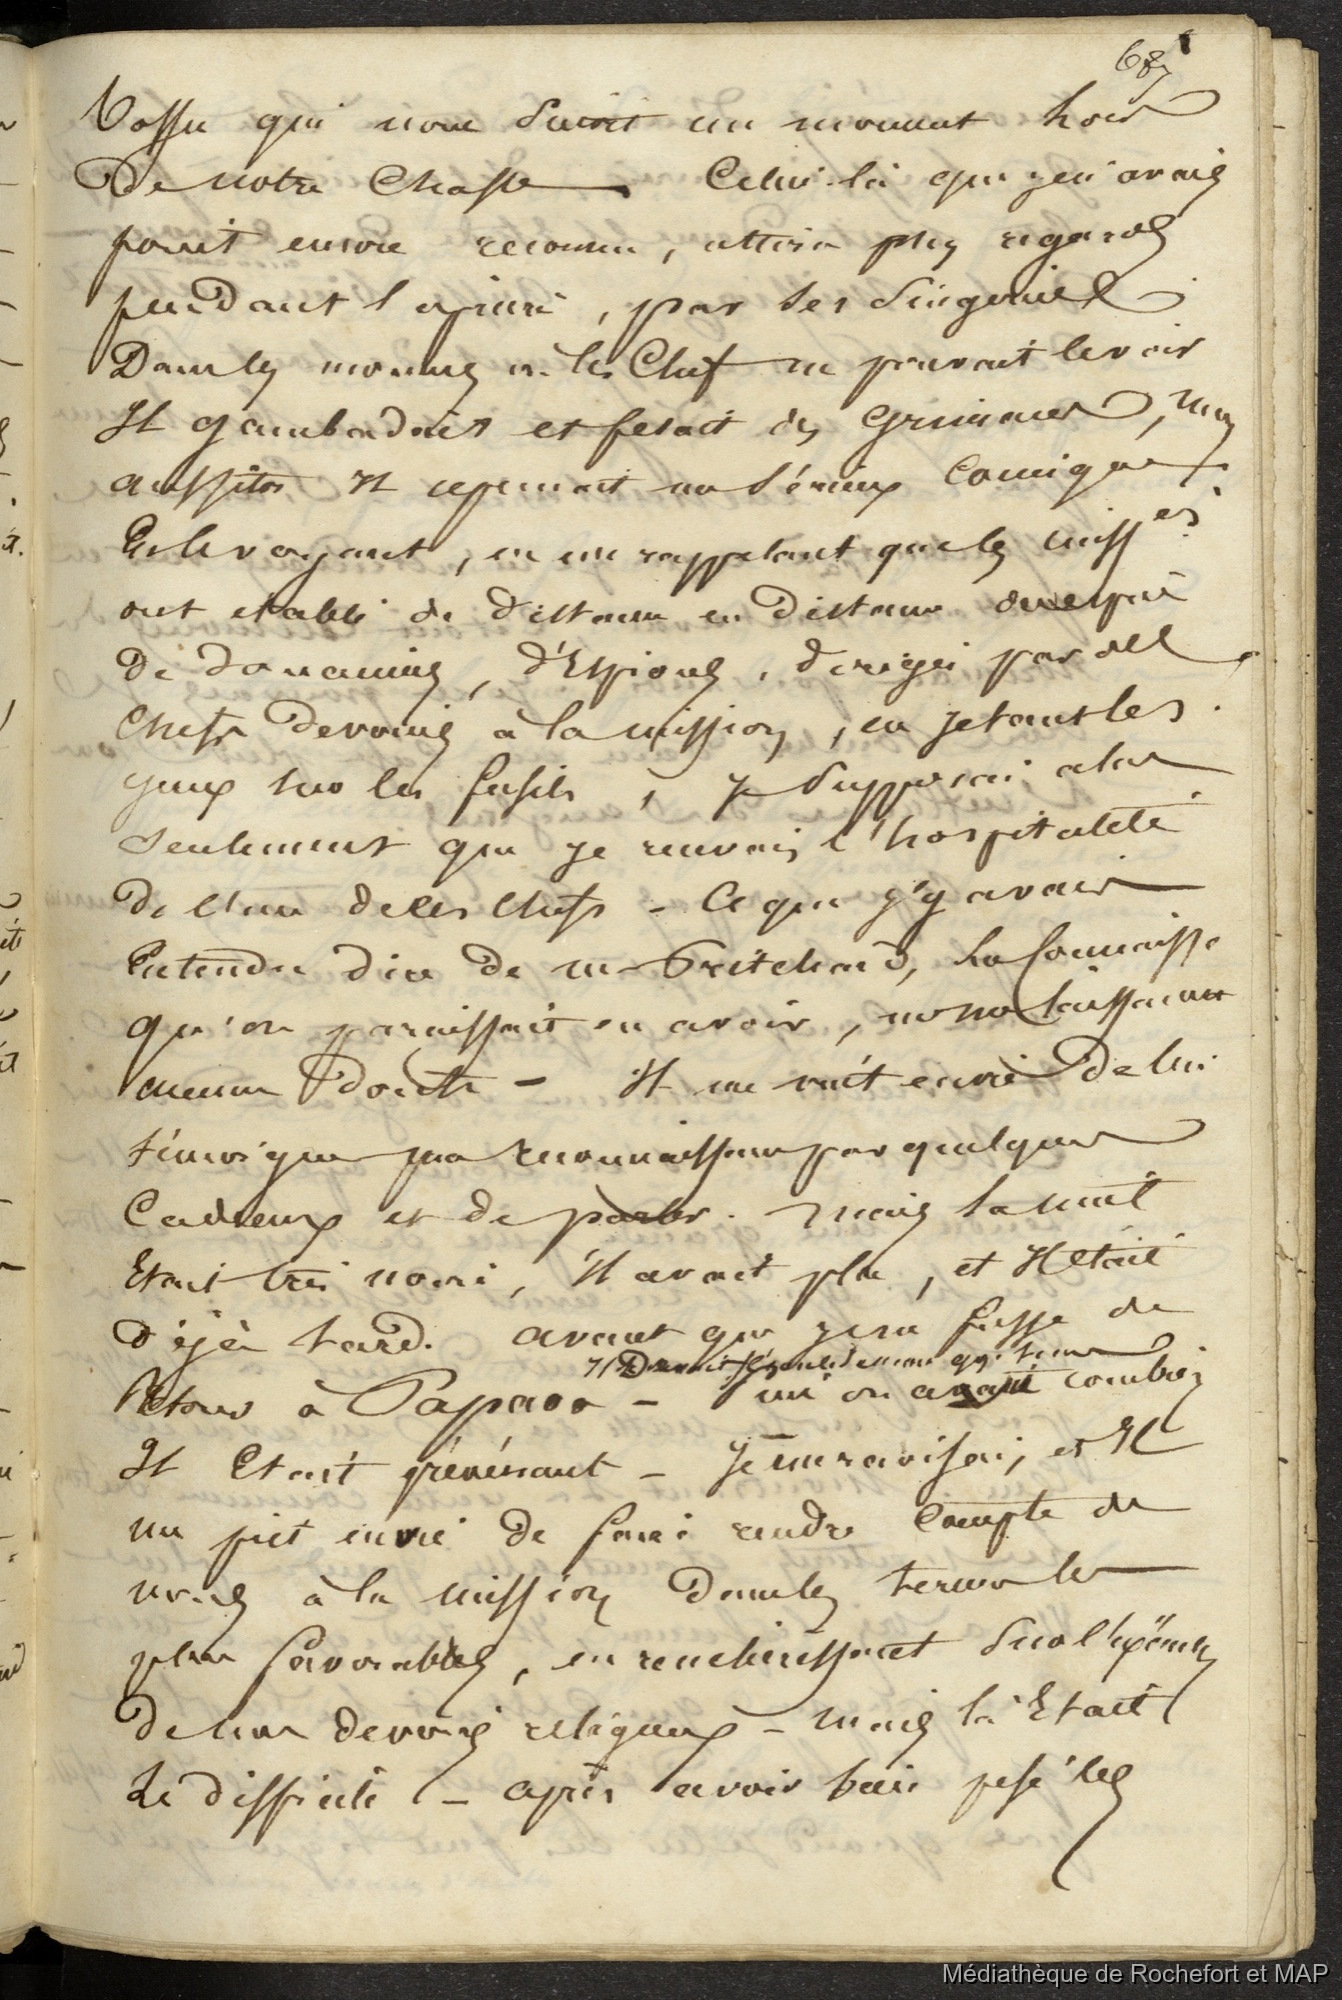 687
bossu qui nous suivit un moment hors
De notre Chasse. Celui-là que je n'avais
point encore reconnu, attira mes regards
pendant l'apime, par ses singeries
Dans les momens où les Chefs ne pouvait le voir
Il gambadait et fesait des Grimaces, mais
aussitôt Il reprenait un sérieux Comique.
En le voyant, en me rappelant que les miss.res
ont etabli de distance en Distance une espèce
De douaniers, d'Espions, dirigés par des
Chefs devoués à la mission, en jetant les
yeux sur les fusils, je supposai alors
seulement que je recevais l'hospitalité
De l'un de ces chefs - Ce que j'y avais
Entendu dire de m. Pritchard, la Connaisse
qu'on paraissait en avoir, ne me laissaient
aucun Doute - Il me vint envie De lui
témoigner ma reconnaissance par quelques
Cadeaux et de parler. Mais la nuit
Etait très noire, il avait plu, et Il était
Déjà tard. avant que je ne fusse de
Il Devait
Retour à Papaoa - combien
Il Etait prévenant - Je me ravisai, et Il
me prit envie De faire rendre Compte de
nous à la mission Dans les termes les
plus favorables, en renchérissant sur l'
De leur devoirs religieux - mais là Etait
Le difficile - après avoir bien pesé les
Médiathèque de Rochefort et MAP